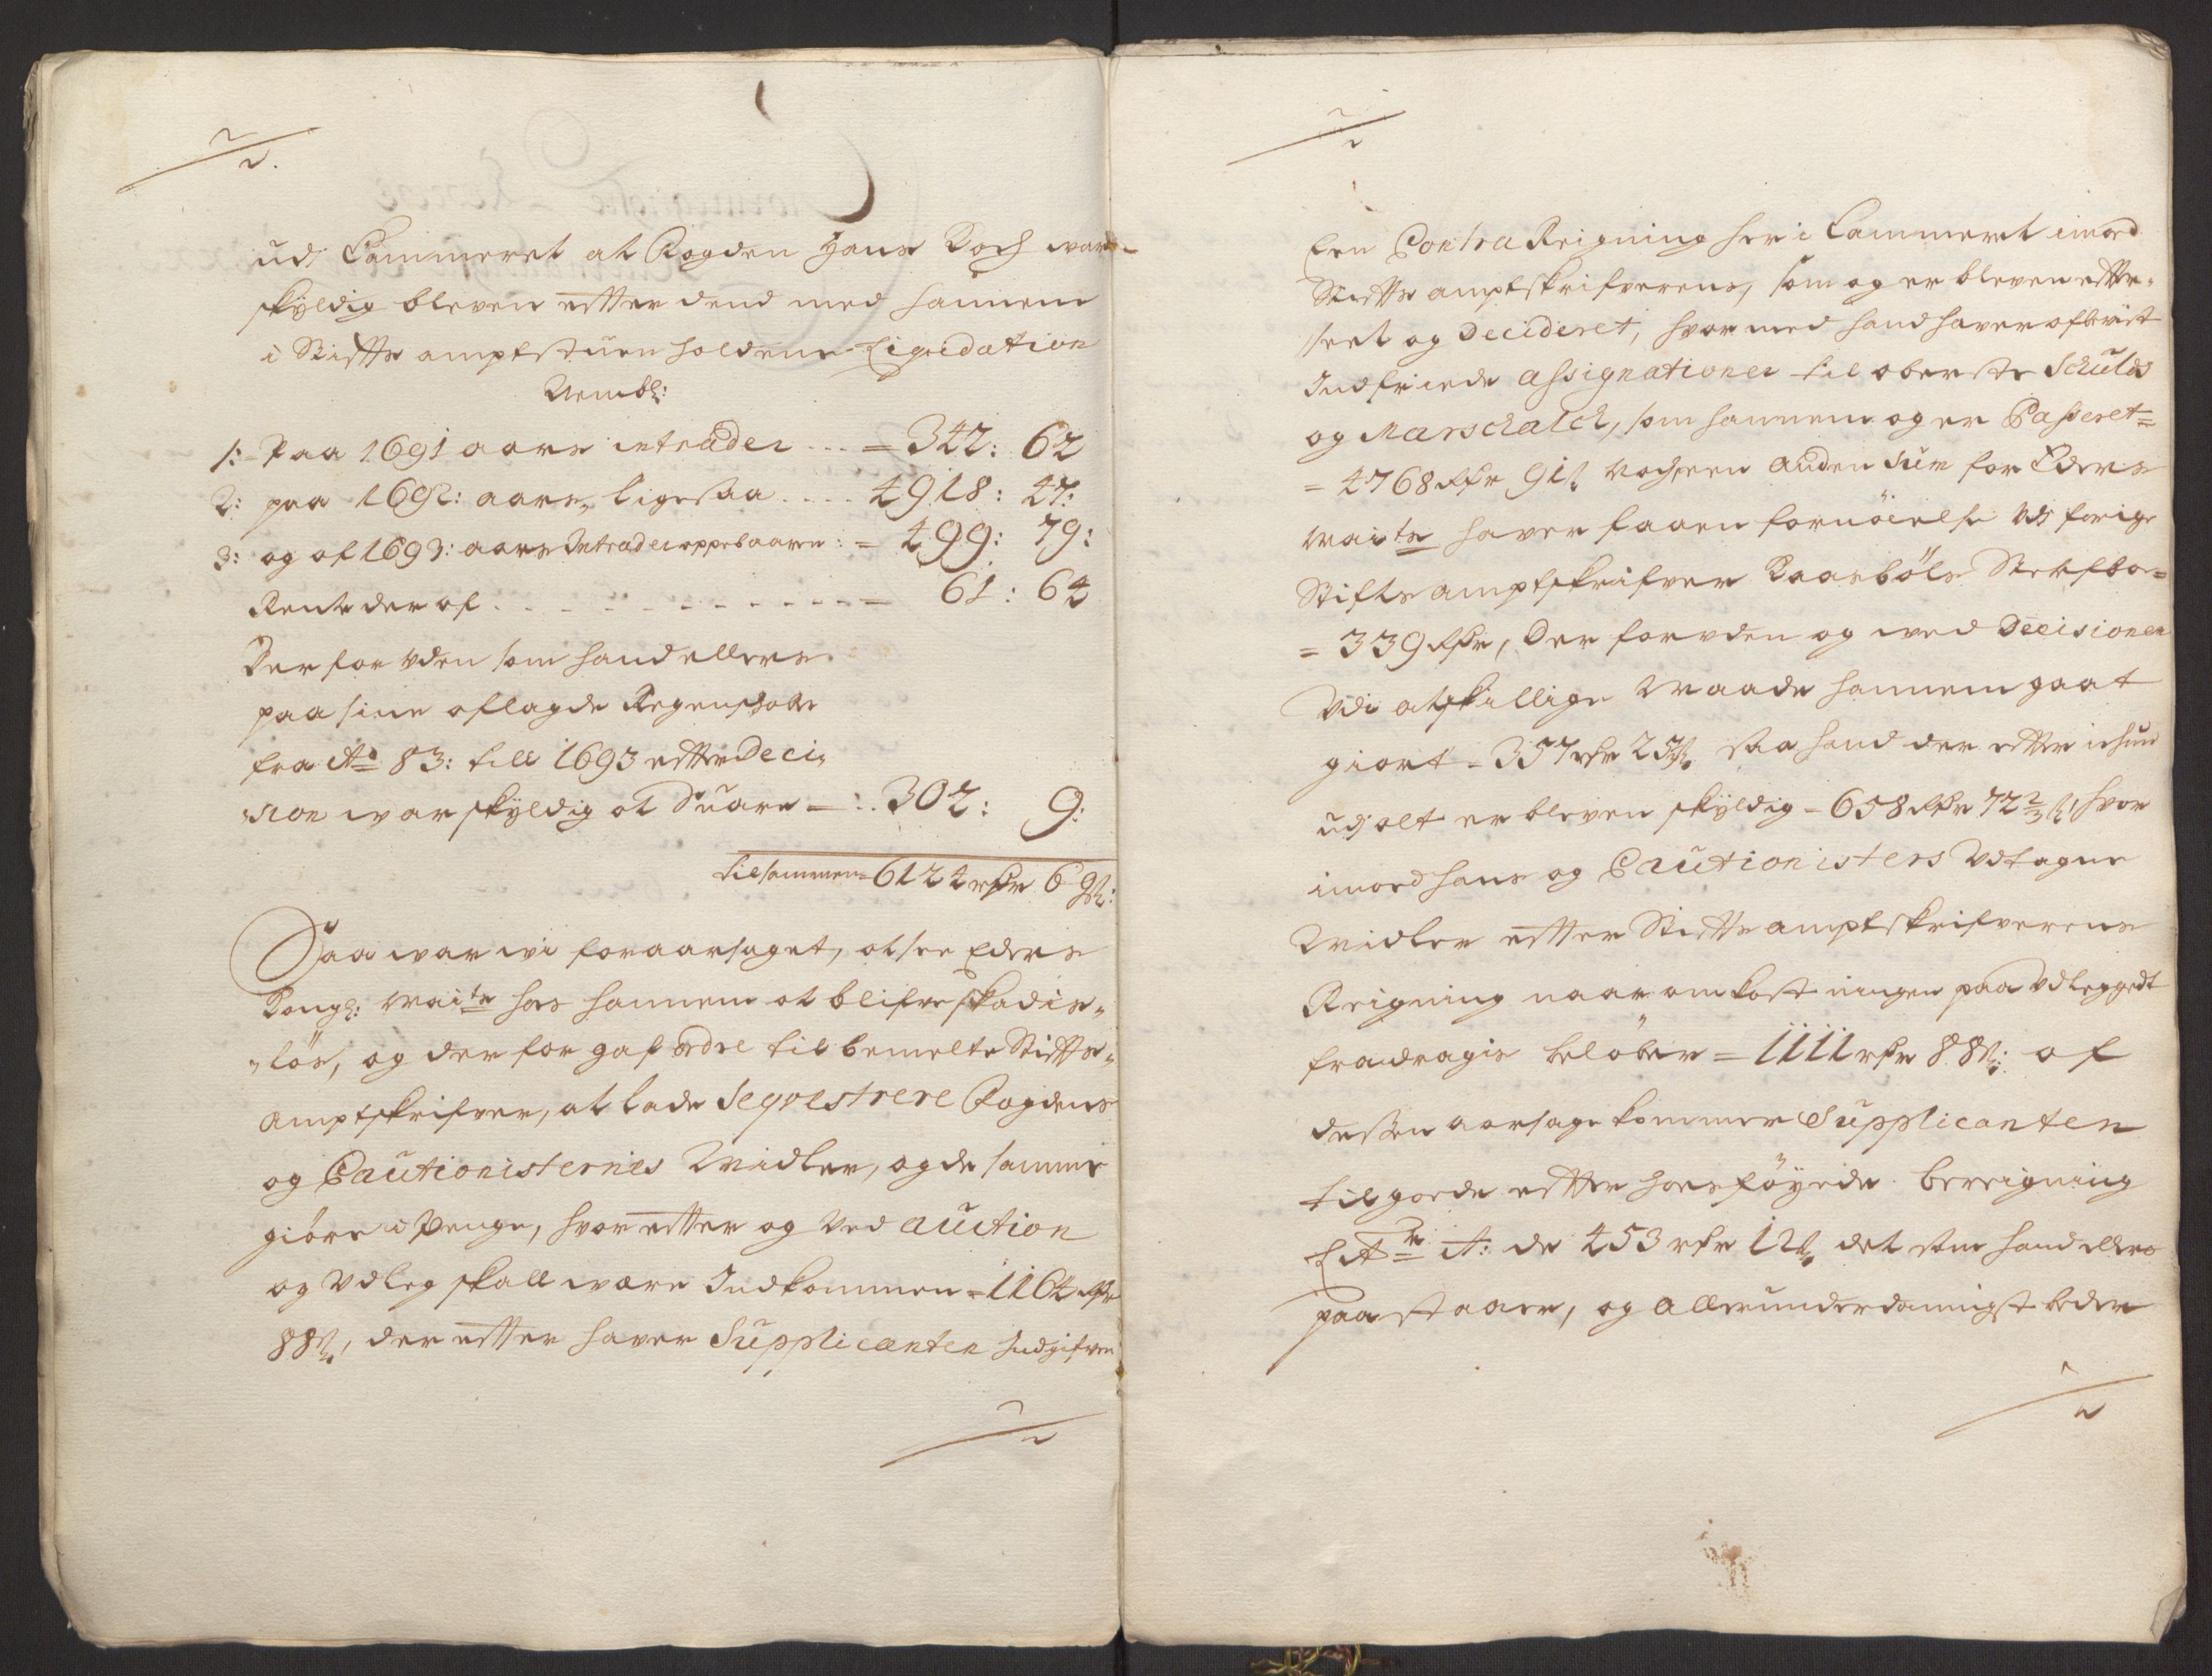 udj Cammeret at Fogden Hans Koch war
skyldig bleven effter dend med hannem
i Stiftsamptstuen holdene Liqvidation
Nembl:
1: Paa 1691 aars intrader ... = 342: 62
2: paa 1692: aars, ligesaa .... 4918: 47:
3: og af 1693: aars Intrader oppebaaren: = 499: 79:
Rente der af ... = 61: 64
Der foruden som hand ellers
paa sine aflagde Regenskaber
fra Ao 83: till 1693 effter Deci„
sion war skyldig at Suare — : .. 302: 9:
tilsammen = 6124 rdr 69 s:
Saa war wi foraarsaget, at see Eders
Kongl: Maits hos hannem at blifve skadis„
„løs, og der for gaf ordre til bemelte Stiffts„
amptskrifver, at lade Seqvestrere Fogdens
og Cautionisternes Midler, og de samme
giøre i Penge, hvor effter og ved auction
og Vdleg skall være Indkommen = 1164 rdr
88 s, der effter haver Supplicanten Indgifven
Een Contra Reigning her i Cammeret imod
Stiffts amptskrifverens, som og er bleven effter„
seet og Decideret, hvor med hand haver afbevist
Indfriede assignationer til oberste Schultz
og Marschalck, som hannem og er Passeret =
= 4768 rdr 91 s noch een anden Sum for Eders
Maits haver faaen fornøielse udj forige
Stifts amptskrifver Kaasbøls Sterfboe =
= 339 rdr, Der foruden og ved Decisionen
Vdi atskillige Maade hannem gaat
giort = 357 rdr 25 s, saa hand der effter ichun
udj alt er bleven skyldig = 658 rdr 72 2/3 s, hvor
imod hans og Cautionisters Udtagne
Midler effter Stiffts amptskrifverens
Reigning naar omkostningen paa Vdlegget
fradragis beløber = 1111 rdr 88 s: af
dessen aarsage kommer Supplicanten
tilgode effter hosføyede bereigning
Litr A: de 453 rdr 12 s, det som hand ellers
paastaaer, og allerunderdanigst beder